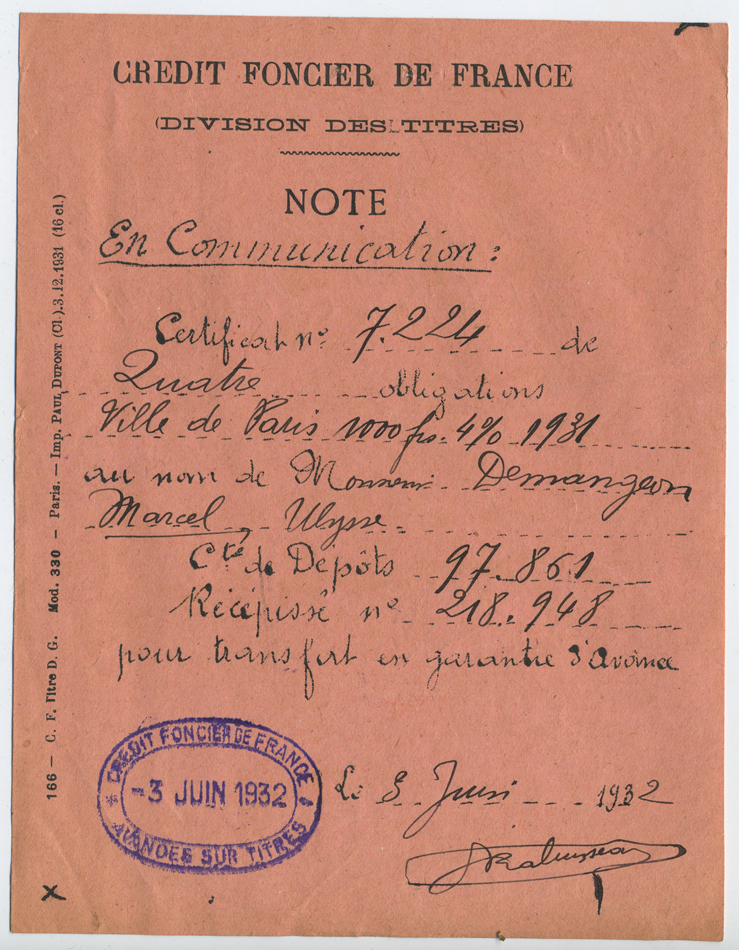 CREDIT FONCIER DE FRANCE
(DIVISION DES TITRES)
NOTE
En Communication :
Certificat n° 7.224 de
Quatre obligations
Ville de Paris 1000 frs. 4% 1931
au nom de Monsieur Demangeon
Marcel, Ulysse
Cte de Dépôts 97.861
Récépissé n° 218.948
pour transfert en garantie d'Avance
CREDIT FONCIER DE FRANCE
-3 JUIN 1932
AVANCES SUR TITRES
Le 3 Juin 1932
166 — C. F. Titre D. G. Mod. 330 — Paris. — Imp. PAUL DUPONT (Cl.).3.12.1931 (16 cl.)